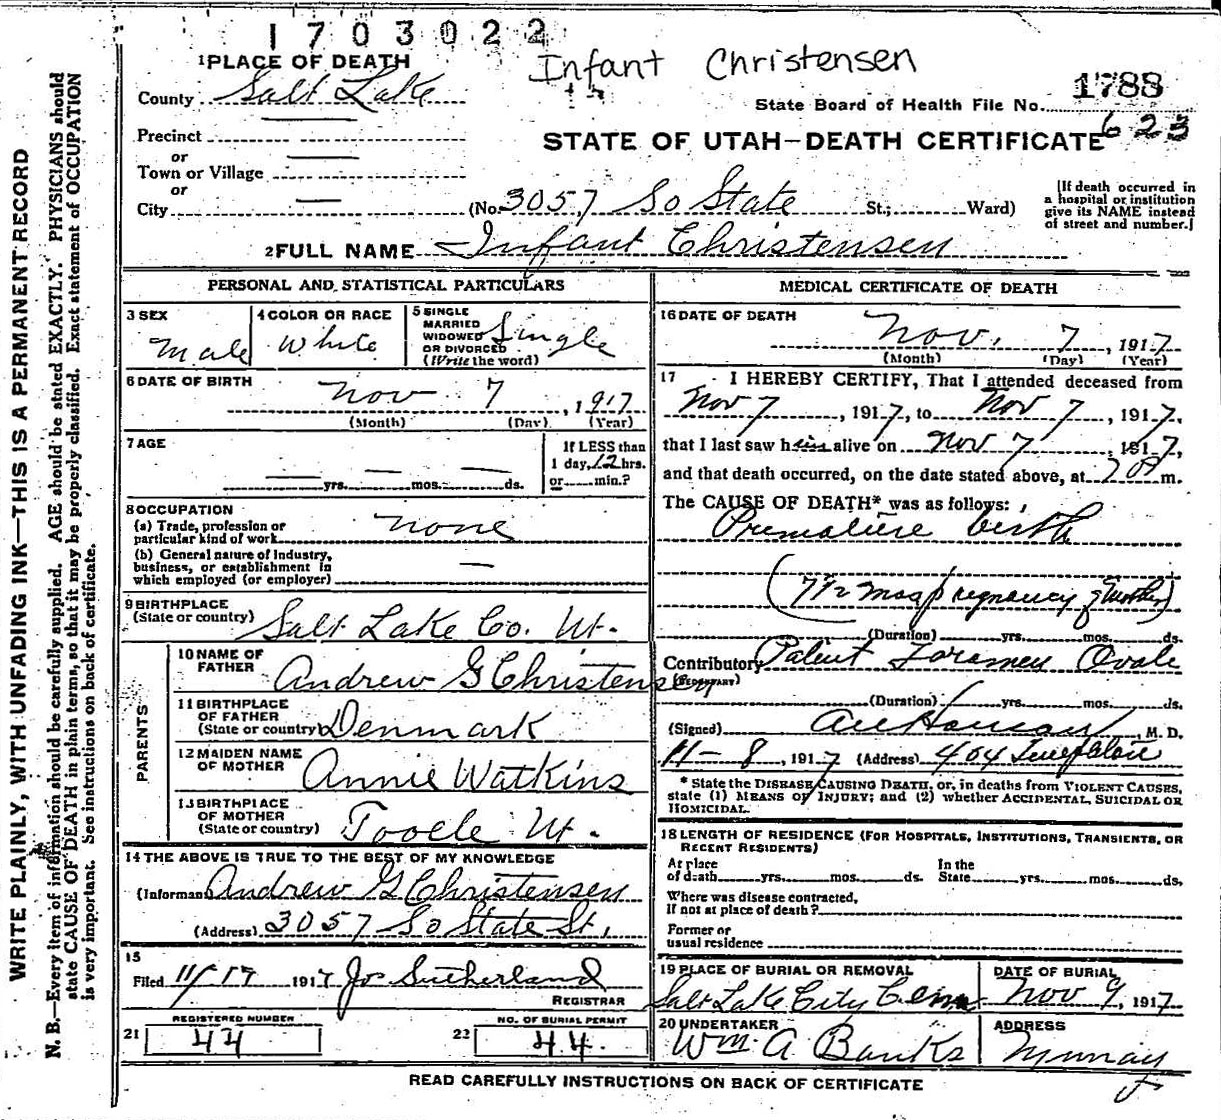 1703022
Infant Christensen
1 PLACE OF DEATH
County Salt Lake
1788
State Board of Health File No. 623
Precinct
or
Town or Village
or
City
STATE OF UTAH—DEATH CERTIFICATE
(No. 3057 So State St.; Ward)
[If death occurred in a hospital or institution give its NAME instead of street and number.]
2 FULL NAME Infant Christensen
PERSONAL AND STATISTICAL PARTICULARS
3 SEX
Male
4 COLOR OR RACE
White
5 SINGLE
MARRIED
WIDOWED
OR DIVORCED
(Write the word)
Single
6 DATE OF BIRTH
Nov 7, 1917
(Month) (Day) (Year)
7 AGE
yrs. mos. ds.
If LESS than
1 day, 12 hrs.
or min.?
8 OCCUPATION
(a) Trade, profession or
particular kind of work none
(b) General nature of Industry,
business, or establishment in
which employed (or employer)
9 BIRTHPLACE
(State or country) Salt Lake Co. Ut.
PARENTS
10 NAME OF
FATHER Andrew G Christensen
11 BIRTHPLACE
OF FATHER
(State or country) Denmark
12 MAIDEN NAME
OF MOTHER Annie Watkins
13 BIRTHPLACE
OF MOTHER
(State or country) Tooele Ut.
14 THE ABOVE IS TRUE TO THE BEST OF MY KNOWLEDGE
(Informant Andrew G Christensen
(Address) 3057 So State St.
15
Filed 11/17 1917 Jos Sutherland
REGISTRAR
21 REGISTERED NUMBER
44
22 NO. OF BURIAL PERMIT
44.
MEDICAL CERTIFICATE OF DEATH
16 DATE OF DEATH
Nov. 7, 1917
(Month) (Day) (Year)
17 I HEREBY CERTIFY, That I attended deceased from
Nov 7, 1917, to Nov 7, 1917,
that I last saw him alive on Nov 7, 1917,
and that death occurred, on the date stated above, at m.
The CAUSE OF DEATH* was as follows:
Premature birth
(7 1/2 mos pregnancy of Mother)
(Duration) yrs. mos. ds.
Contributory Patent Foramen Ovale
(SECONDARY)
(Duration) yrs. mos. ds.
(Signed) M. D.
11-8, 1917 (Address) 404
* State the DISEASE CAUSING DEATH, or, in deaths from VIOLENT CAUSES,
state (1) MEANS OF INJURY; and (2) whether ACCIDENTAL, SUICIDAL OR
HOMICIDAL.
18 LENGTH OF RESIDENCE (FOR HOSPITALS, INSTITUTIONS, TRANSIENTS, OR
RECENT RESIDENTS)
At place In the
of death yrs. mos. ds. State yrs. mos. ds.
Where was disease contracted,
If not at place of death?
Former or
usual residence
19 PLACE OF BURIAL OR REMOVAL
Salt Lake City Cem
DATE OF BURIAL
Nov 9, 1917
20 UNDERTAKER
Wm A Banks
ADDRESS
Murray
READ CAREFULLY INSTRUCTIONS ON BACK OF CERTIFICATE
WRITE PLAINLY, WITH UNFADING INK—THIS IS A PERMANENT RECORD
N. B.—Every item of information should be carefully supplied. AGE should be stated EXACTLY. PHYSICIANS should
state CAUSE OF DEATH in plain terms, so that it may be properly classified. Exact statement of OCCUPATION
is very important. See instructions on back of certificate.